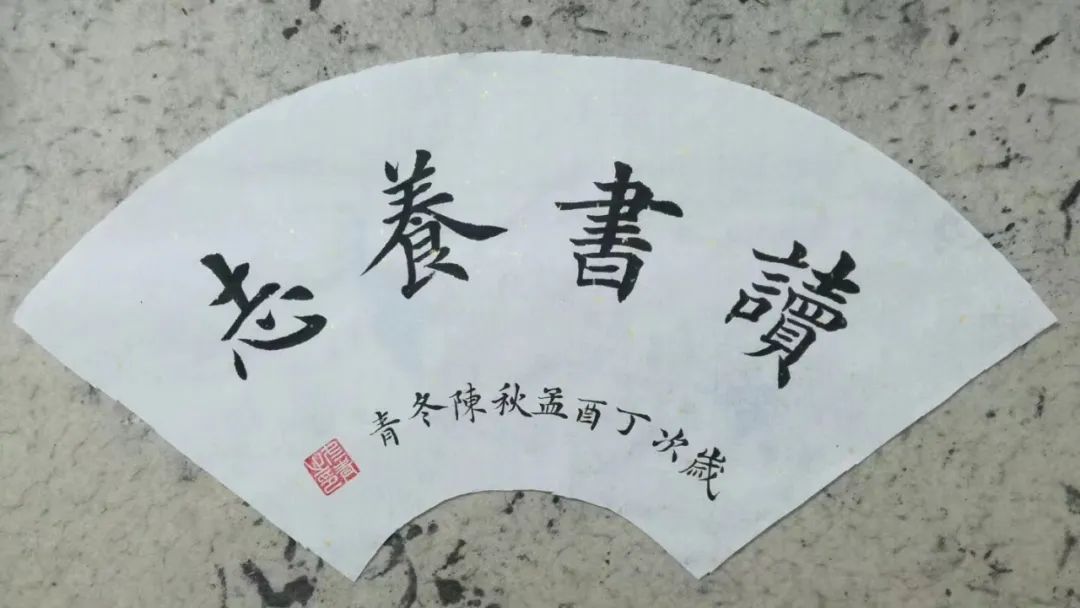 讀書養志
歲次丁酉孟秋陳冬青